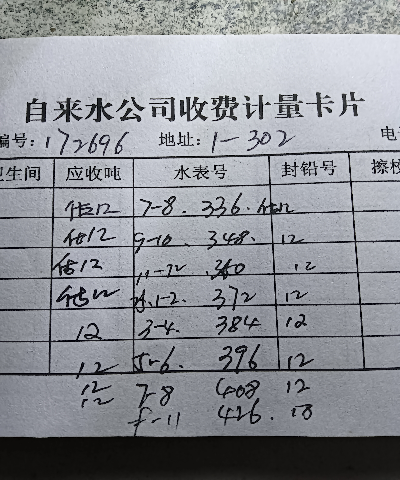 自来水公司收费计量卡片
编号:172696 地址:1-302 电
卫生间 应收吨 水表号 封铅号 擦校
估12 7-8. 336. 估12
估12 9-10. 348. 12
估12 11-12 360 12
估12 1-2. 372 12
12 3-4. 384 12
12 5-6. 396 12
12 7-8 408 12
12 11 426. 18